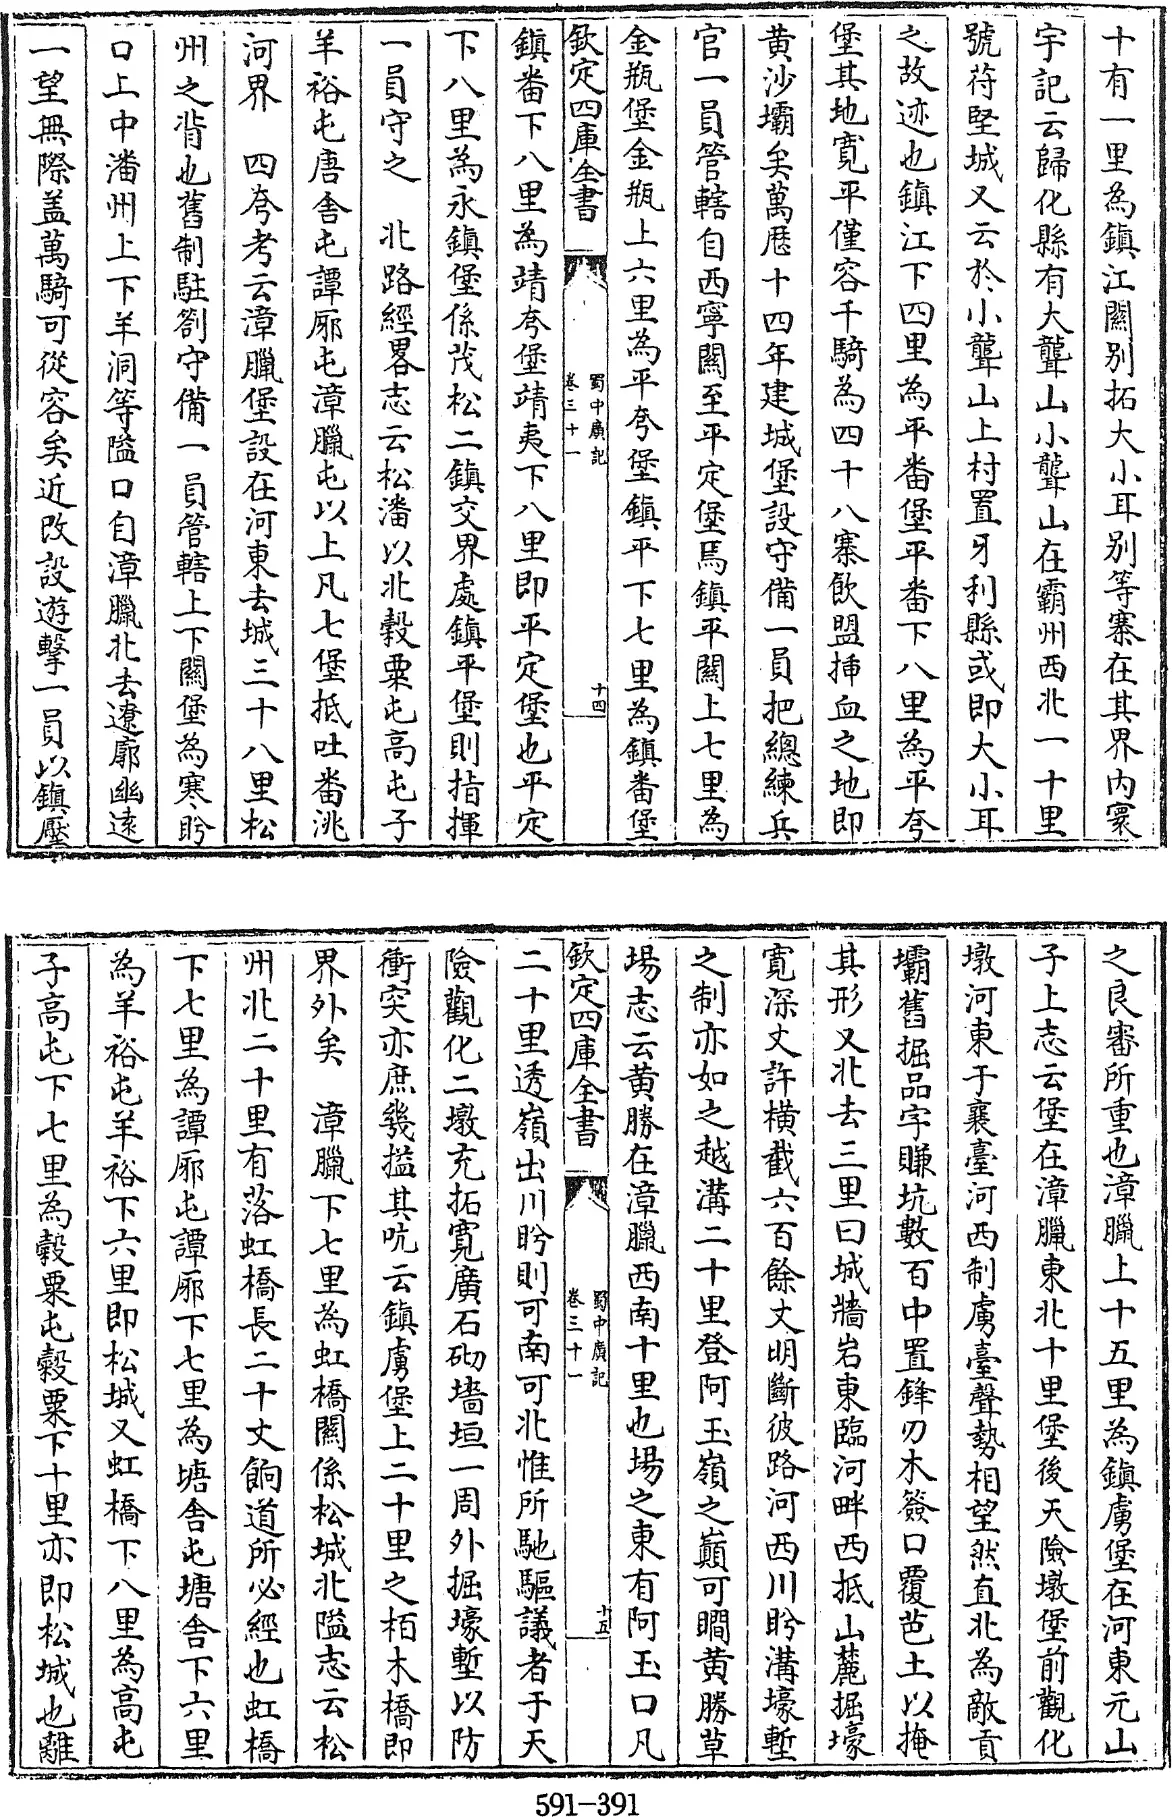 十有一里為鎮江關别拓大小耳别等寨在其界内寰
宇記云歸化縣有大聾山小聾山在霸州西北一十里
號苻堅城又云於小聾山上村置牙利縣或即大小耳
之故迹也鎮江下四里為平番堡平番下八里為平夸
堡其地寛平僅容千騎為四十八寨飲盟揷血之地即
黄沙壩矣萬厯十四年建城堡設守備一員把總練兵
官一員管轄自西寧關至平定堡焉鎮平關上七里為
金瓶堡金瓶上六里為平夸堡鎮平下七里為鎮番堡
欽定四庫全書
蜀中廣記
卷三十一
十四
鎮番下八里為靖夸堡靖夷下八里即平定堡也平定
下八里為永鎮堡係茂松二鎮交界處鎮平堡則指揮
一員守之　北路經畧志云松潘以北穀粟屯高屯子
羊裕屯唐舎屯譚邴屯漳臘屯以上凡七堡抵吐番洮
河界　四夸考云漳臘堡設在河東去城三十八里松
州之背也舊制駐劄守備一員管轄上下關堡為寒盻
口上中潘州上下羊洞等隘口自漳臘北去遼廓幽遠
一望無際盖萬騎可從容矣近改設遊擊一員以鎮壓
之良審所重也漳臘上十五里為鎮虜堡在河東元山
子上志云堡在漳臘東北十里堡後天險墩堡前觀化
墩河東于襄臺河西制虜臺聲勢相望然直北為敵貢
壩舊掘品字賺坑數百中置鋒刃木簽口覆芭土以掩
其形又北去三里曰城牆岩東臨河畔西抵山麓掘壕
寛深丈許横截六百餘丈明斷彼路河西川盻溝壕塹
之制亦如之越溝二十里登阿玉嶺之巔可瞷黄勝草
場志云黄勝在漳臘西南十里也場之東有阿玉口凡
欽定四庫全書
蜀中廣記
卷三十一
十五
二十里透嶺出川盻則可南可北惟所馳驅議者于天
險觀化二墩充拓寛廣石砌墻垣一周外掘壕塹以防
衝突亦庶幾搤其吭云鎮虜堡上二十里之栢木橋即
界外矣　漳臘下七里為虹橋關係松城北隘志云松
州北二十里有落虹橋長二十丈餉道所必經也虹橋
下七里為譚邴屯譚邴下七里為塘舎屯塘舎下六里
為羊裕屯羊裕下六里即松城又虹橋下八里為高屯
子高屯下七里為穀粟屯穀粟下十里亦即松城也離
591-391